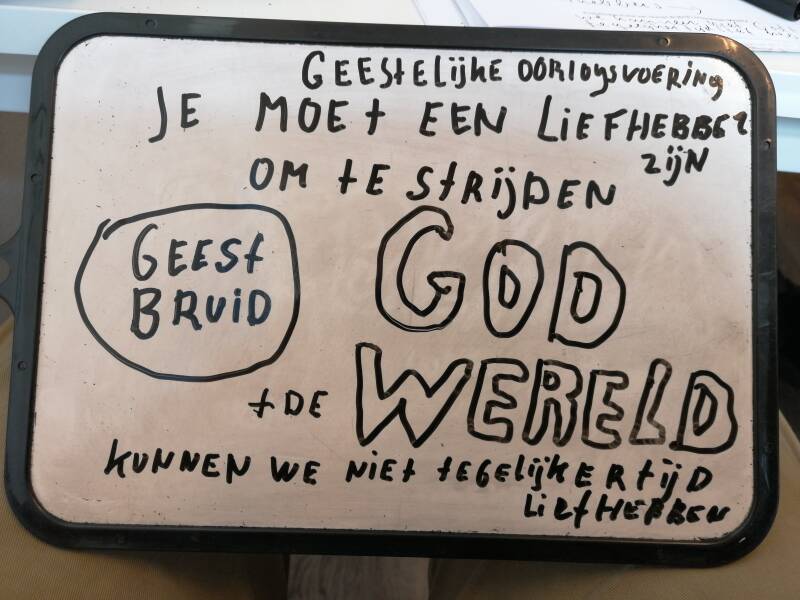 GEEStELijKE OORlOgSVOERiNg
JE MOEt EEN LiEFHEBBER
ZijN
OM tE StRijDEN
GEESt
BRUiD
GOD
+ DE WERELD
KUNNEN WE NiEt tEGELijKERtijD
LiEfHEBBEN